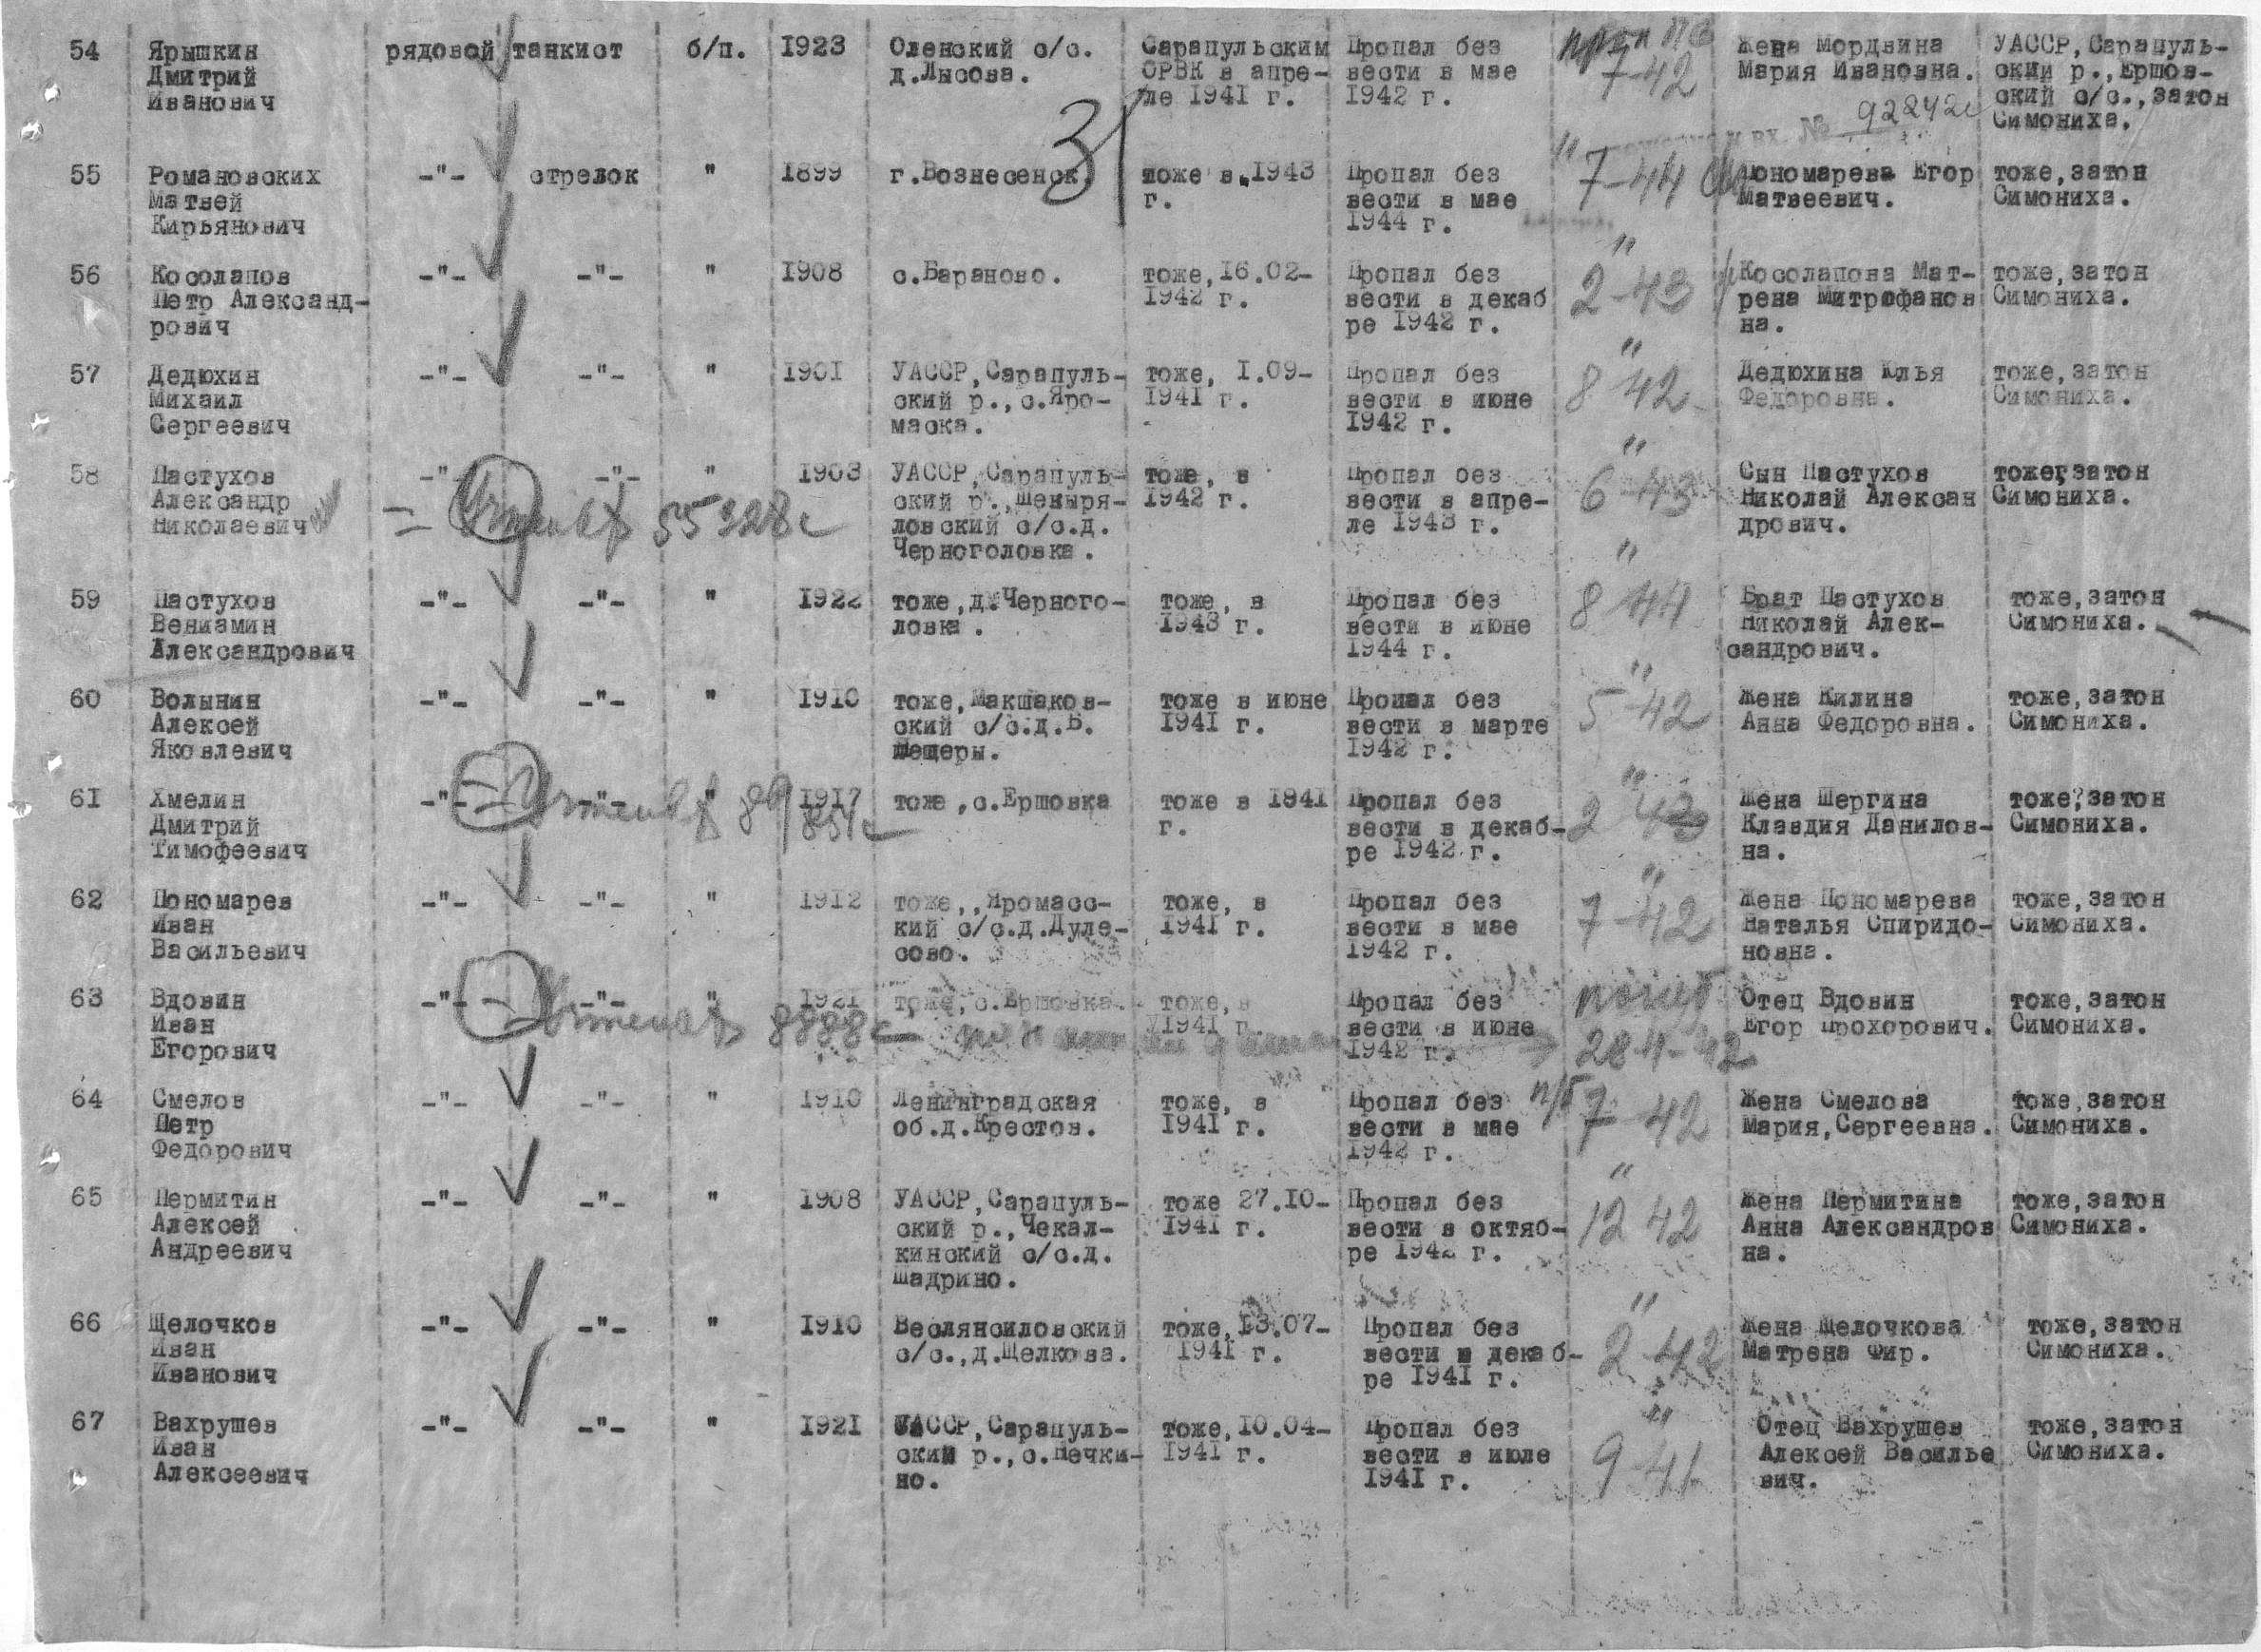 54 Ярышкин рядовой танкист б/п. 1923 Оленский с/с. Сарапульским Пропал без Жена Мордвина УАССР, Сарапуль-
Дмитрий д.Лысова. ОРВК в апре- вести в мае 7-42 Мария Ивановна. ский р., Ершов-
Иванович ле 1941 г. 1942 г. ский с/с., затон
31 № 92242с Симониха.
55 Романовских -"- стрелок " 1899 г.Вознесенск. тоже в 1943 Пропал без " 7-44 Пономарева Егор тоже, затон
Матвей г. вести в мае Матвеевич. Симониха.
Кирьянович 1944 г.
56 Косолапов -"- -"- " 1908 с.Бараново. тоже, 16.02- Пропал без " 2-43 Косолапова Мат- тоже, затон
Петр Александ- 1942 г. вести в декаб рена Митрофанов Симониха.
рович ре 1942 г. на.
57 Дедюхин -"- -"- " 1901 УАССР, Сарапуль- тоже, 1.09- Пропал без " 8 42 Дедюхина Юлья тоже, затон
Михаил ский р., с.Яро- 1941 г. вести в июне Федоровна. Симониха.
Сергеевич маска. 1942 г.
58 Пастухов -"- -"- " 1903 УАССР, Сарапуль- тоже, в Пропал без " 6-43 Сын Пастухов тоже, затон
Александр ский р., Шевыря- 1942 г. вести в апре- Николай Алексан Симониха.
Николаевич 55328с ловский с/с.д. ле 1943 г. дрович.
Черноголовка.
59 Пастухов -"- -"- " 1922 тоже, д.Черного- тоже, в Пропал без " 8 44 Брат Пастухов тоже, затон
Вениамин ловка. 1943 г. вести в июне Николай Алек- Симониха.
Александрович 1944 г. сандрович.
60 Волынин -"- -"- " 1910 тоже, Макшаков- тоже в июне Пропал без " 5-42 Жена Килина тоже, затон
Алексей ский с/с.д.Б. 1941 г. вести в марте Анна Федоровна. Симониха.
Яковлевич Пещеры. 1942 г.
61 Хмелин -"- -"- " 1917 тоже, с.Ершовка тоже в 1941 Пропал без " 2 43 Жена Шергина тоже, затон
Дмитрий г. вести в декаб- Клавдия Данилов- Симониха.
Тимофеевич ре 1942 г. на.
62 Пономарев -"- -"- " 1912 тоже,,Яромасс- тоже, в Пропал без " 7-42 Жена Пономарева тоже, затон
Иван кий с/с.д.Дуле- 1941 г. вести в мае Наталья Спиридо- Симониха.
Васильевич сово. 1942 г. новна.
63 Вдовин -"- -"- " 1921 тоже, с.Ершовка. тоже, в Пропал без погиб Отец Вдовин тоже, затон
Иван 8888с 1941 г. вести в июне Егор Прохорович. Симониха.
Егорович 1942 г. 28 4-42
64 Смелов -"- -"- " 1910 Ленинградская тоже, в Пропал без п/б 7 42 Жена Смелова тоже, затон
Петр об.д.Крестов. 1941 г. вести в мае Мария,Сергеевна. Симониха.
Федорович 1942 г.
65 Пермитин -"- -"- " 1908 УАССР, Сарапуль- тоже 27.10- Пропал без " 12 42 Жена Пермитина тоже, затон
Алексей ский р., Чекал- 1941 г. вести в октяб- Анна Александров Симониха.
Андреевич кинский с/с.д. ре 1942 г. на.
Шадрино.
66 Щелочков -"- -"- " 1910 Веслянсиловский тоже, 13.07- Пропал без " 2-42 Жена Щелочкова тоже, затон
Иван с/с., д.Щелкова. 1941 г. вести в декаб- Матрена Фир. Симониха.
Иванович ре 1941 г.
67 Вахрушев -"- -"- " 1921 УАССР, Сарапуль- тоже, 10.04- Пропал без " 9-41 Отец Вахрушев тоже, затон
Иван ский р., с.Нечки- 1941 г. вести в июле Алексей Василье Симониха.
Алексеевич но. 1941 г. вич.